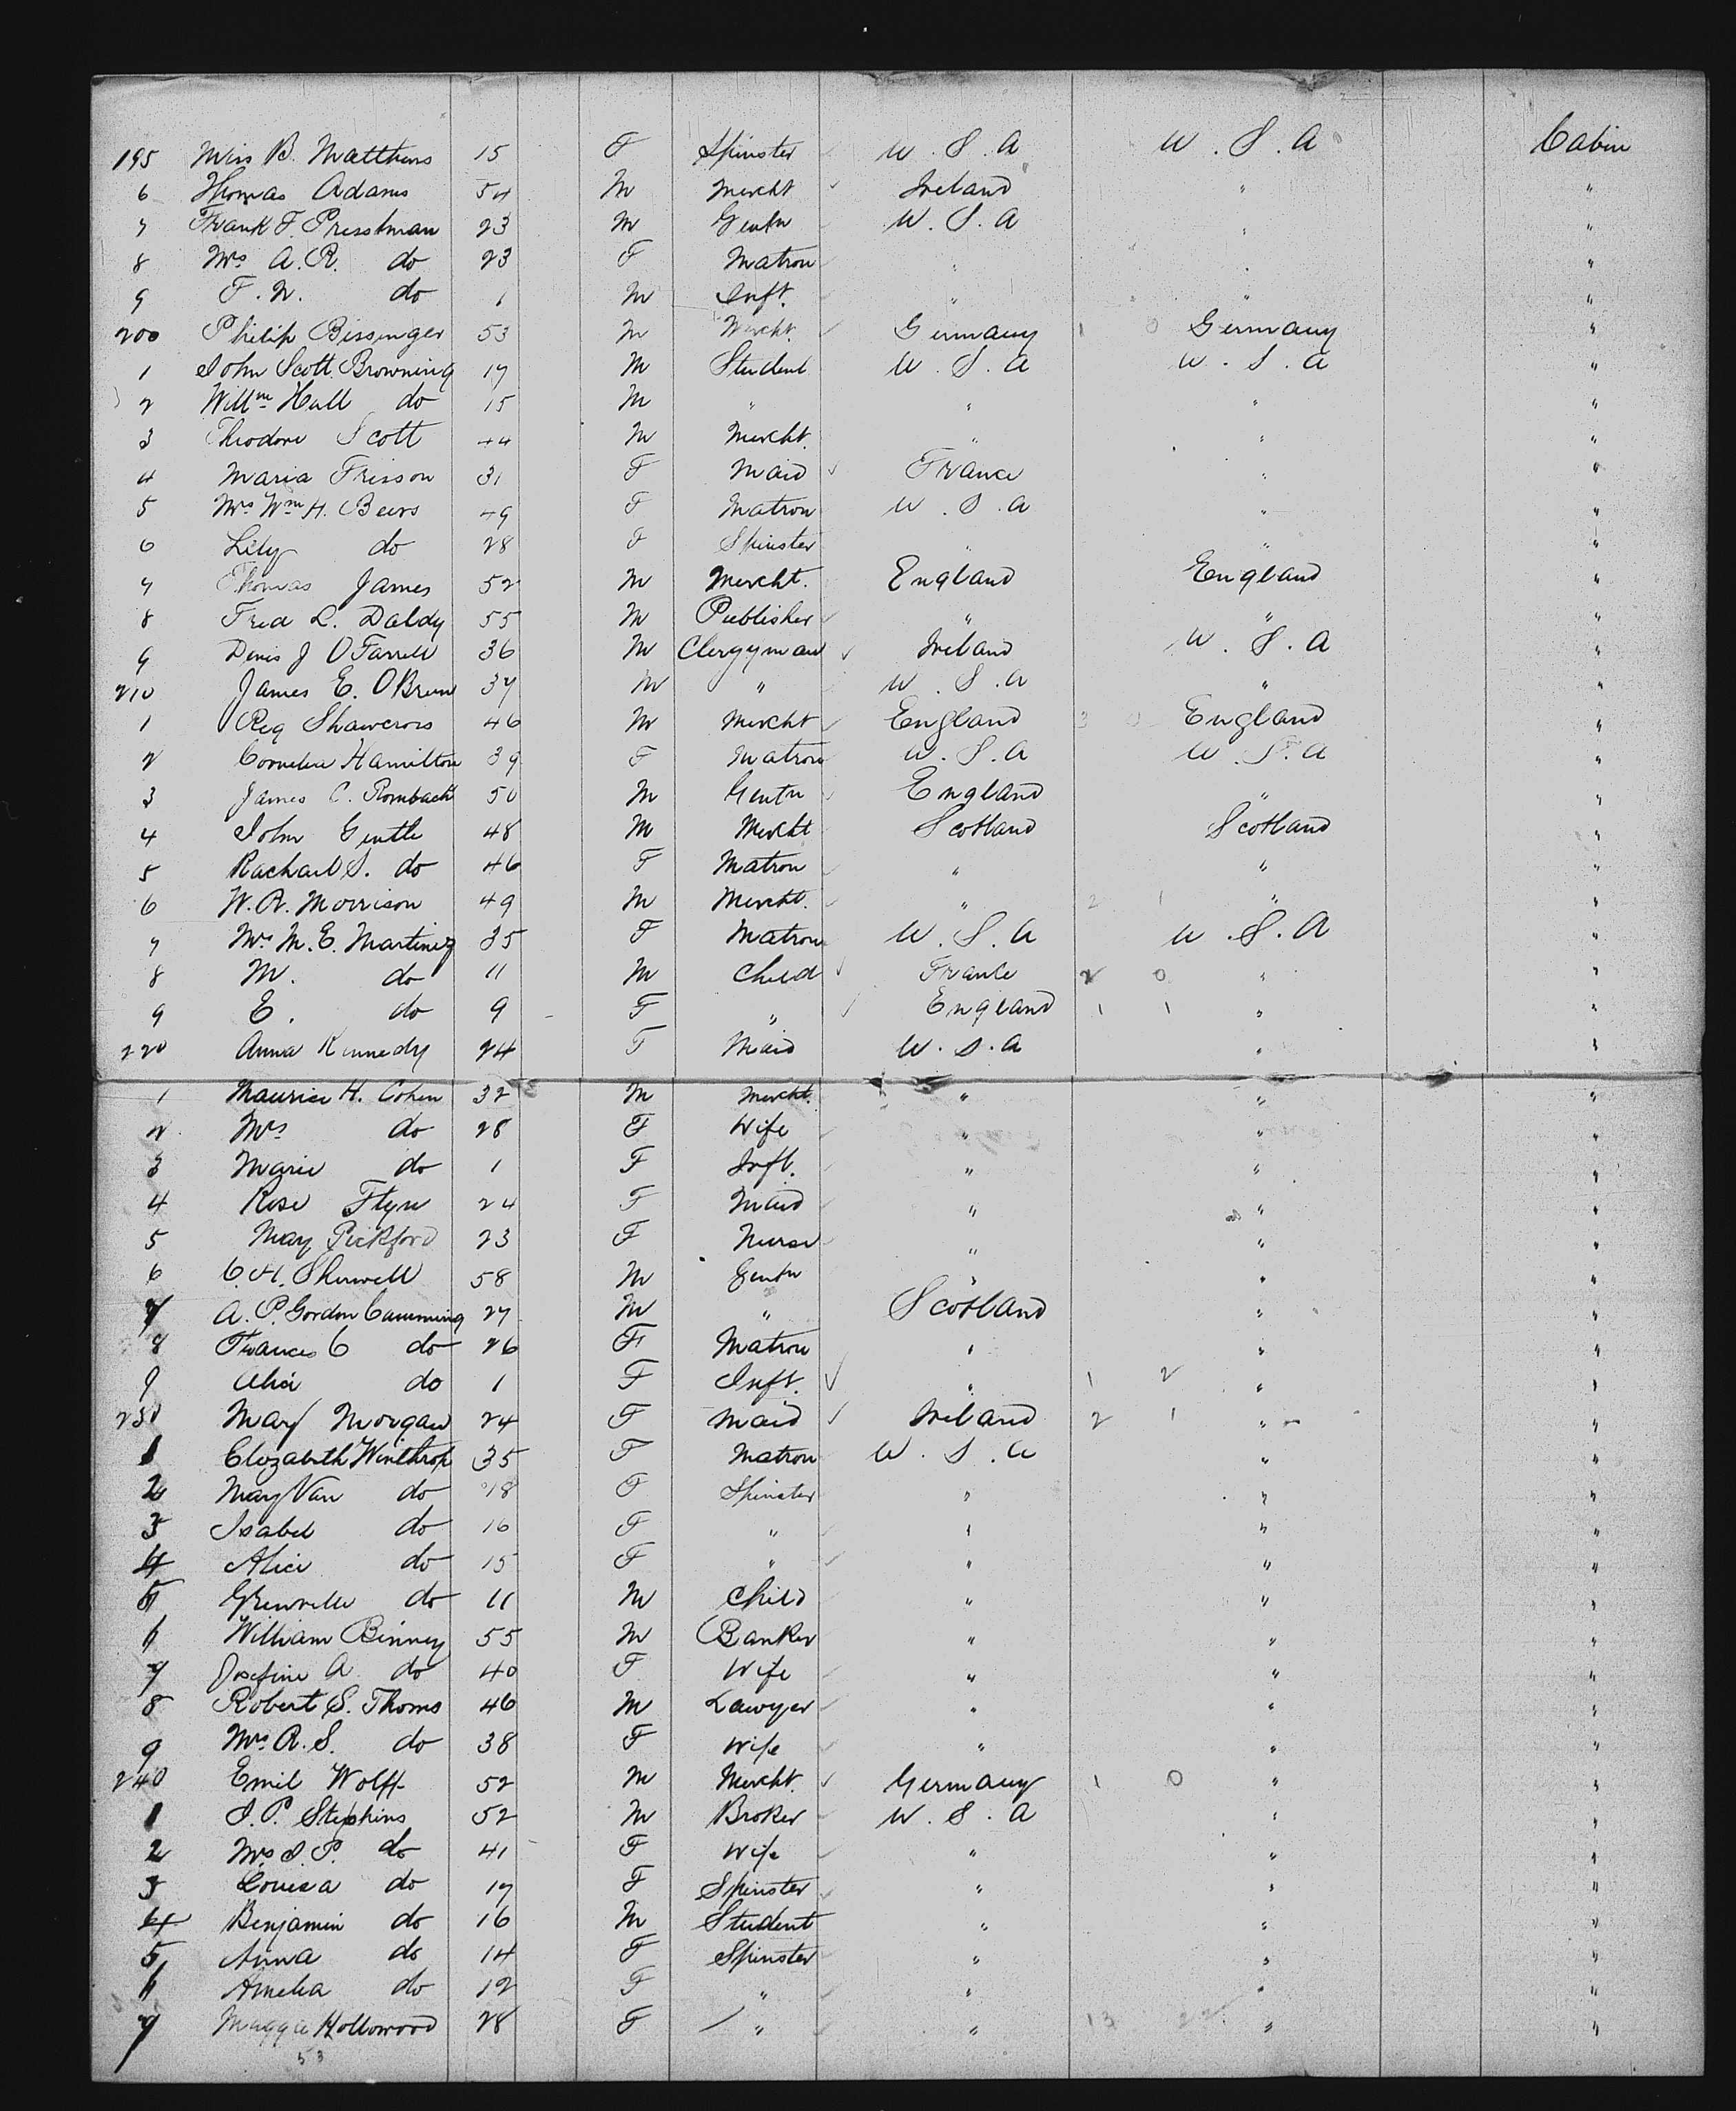 195 Miss B. Matthews 15 F Spinster U.S.A U.S.A Cabin
6 Thomas Adams 54 M Mercht Ireland " "
7 Frank F. Presstman 23 M Gentn U.S.A " "
8 Mrs A.R. do 23 F Matron " " "
9 F.N. do 1 M Inft. " " "
200 Philip Bissinger 53 M Mercht. Germany 1 0 Germany "
1 John Scott Browning 17 M Student U.S.A U.S.A "
2 Willm Hall do 15 M " " " "
3 Theodore Scott 44 M Mercht. " " "
4 Maria Frisson 31 F Maid France " "
5 Mrs Wm H. Beers 49 F Matron U.S.A " "
6 Lily do 28 F Spinster " " "
7 Thomas James 52 M Mercht. England England "
8 Fred L. Daldy 55 M Publisher " " "
9 Denis J O'Farrell 36 M Clergyman Ireland U.S.A "
210 James E. O'Brien 37 M " U.S.A " "
1 Reg Shawcross 46 M Mercht England 3 0 England "
2 Cornelia Hamilton 39 F Matron U.S.A U.S.A "
3 James C. Rombach 50 M Gentn England " "
4 John Gentle 48 M Mercht Scotland Scotland "
5 Rachael S. do 46 F Matron " " "
6 W.R. Morrison 49 M Mercht. " 2 1 " "
7 Mrs M.E. Martinez 35 F Matron U.S.A U.S.A "
8 M. do 11 M Child France 2 0 " "
9 E. do 9 F " England 1 1 " "
220 Anna Kennedy 24 F Maid U.S.A " "
1 Maurice H. Cohen 32 M Mercht. " " "
2 Mrs do 28 F Wife " " "
3 Marie do 1 F Inft. " " "
4 Rose Flynn 24 F Maid " " "
5 May Pickford 23 F Nurse " " "
6 C.H. Sherwell 58 M Gentn " " "
7 A.P. Gordon Cumming 27 M " Scotland " "
8 Frances C do 26 F Matron " " "
9 Alice do 1 F Inft. " 1 2 " "
230 Mary Morgan 24 F Maid Ireland 2 1 " "
1 Elizabeth Winthrop 35 F Matron U.S.A " "
2 May Van do 18 F Spinster " " "
3 Isabel do 16 F " " " "
4 Alice do 15 F " " " "
5 Grenville do 11 M Child " " "
6 William Binney 55 M Banker " " "
7 Josefine A. do 40 F Wife " " "
8 Robert S. Thoms 46 M Lawyer " " "
9 Mrs R.S. do 38 F Wife " " "
240 Emil Wolff 52 M Mercht. Germany 1 0 " "
1 I.P. Stephens 52 M Broker U.S.A " "
2 Mrs I.P. do 41 F Wife " " "
3 Louisa do 17 F Spinster " " "
4 Benjamin do 16 M Student " " "
5 Anna do 14 F Spinster " " "
6 Amelia do 12 F " " " "
7 Maggie Hollowood 28 F " " 13 " "
53